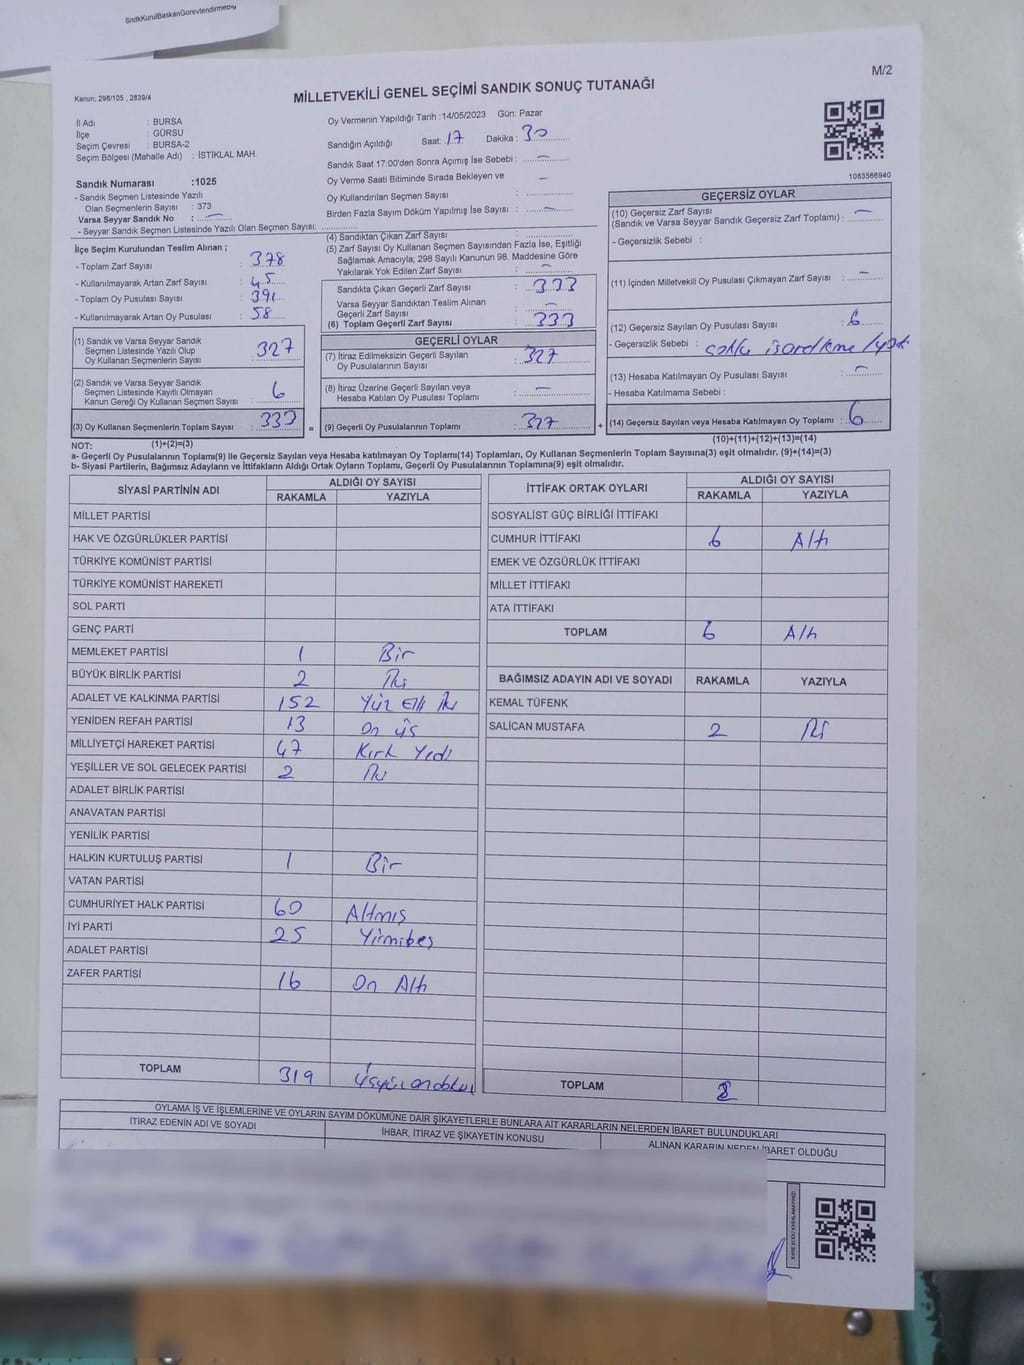 SndkKurulBaskanGorevlendirmeBlg
M/2
Kanun: 298/105 , 2839/4
MİLLETVEKİLİ GENEL SEÇİMİ SANDIK SONUÇ TUTANAĞI
İl Adı : BURSA
İlçe : GÜRSU
Seçim Çevresi : BURSA-2
Seçim Bölgesi (Mahalle Adı) : İSTİKLAL MAH.
Sandık Numarası :1025
- Sandık Seçmen Listesinde Yazılı
Olan Seçmenlerin Sayısı : 373
Varsa Seyyar Sandık No : —
- Seyyar Sandık Seçmen Listesinde Yazılı Olan Seçmen Sayısı:
Oy Vermenin Yapıldığı Tarih :14/05/2023 Gün: Pazar
Sandığın Açıldığı Saat: 17 Dakika : 30
Sandık Saat 17:00'den Sonra Açımış İse Sebebi : —
Oy Verme Saati Bitiminde Sırada Bekleyen ve —
Oy Kullandırılan Seçmen Sayısı :
Birden Fazla Sayım Döküm Yapılmış İse Sayısı : —
1083566940
İlçe Seçim Kurulundan Teslim Alınan ;
- Toplam Zarf Sayısı : 378
- Kullanılmayarak Artan Zarf Sayısı : 45
- Toplam Oy Pusulası Sayısı : 391
- Kullanılmayarak Artan Oy Pusulası : 58
(1) Sandık ve Varsa Seyyar Sandık
Seçmen Listesinde Yazılı Olup
Oy Kullanan Seçmenlerin Sayısı : 327
(2) Sandık ve Varsa Seyyar Sandık
Seçmen Listesinde Kayıtlı Olmayan
Kanun Gereği Oy Kullanan Seçmen Sayısı : 6
(3) Oy Kullanan Seçmenlerin Toplam Sayısı : 333 =
(1)+(2)=(3)
(4) Sandıktan Çıkan Zarf Sayısı :
(5) Zarf Sayısı Oy Kullanan Seçmen Sayısından Fazla İse, Eşitliği
Sağlamak Amacıyla; 298 Sayılı Kanunun 98. Maddesine Göre
Yakılarak Yok Edilen Zarf Sayısı : —
Sandıkta Çıkan Geçerli Zarf Sayısı : 333
Varsa Seyyar Sandıktan Teslim Alınan
Geçerli Zarf Sayısı : —
(6) Toplam Geçerli Zarf Sayısı : 333
GEÇERLİ OYLAR
(7) İtiraz Edilmeksizin Geçerli Sayılan
Oy Pusulasının Sayısı : 327
(8) İtiraz Üzerine Geçerli Sayılan veya
Hesaba Katılan Oy Pusulası Toplamı : —
(9) Geçerli Oy Pusulalarının Toplamı : 327 +
GEÇERSİZ OYLAR
(10) Geçersiz Zarf Sayısı
(Sandık ve Varsa Seyyar Sandık Geçersiz Zarf Toplamı) : —
- Geçersizlik Sebebi :
(11) İçinden Milletvekili Oy Pusulası Çıkmayan Zarf Sayısı : —
(12) Geçersiz Sayılan Oy Pusulası Sayısı : 6
- Geçersizlik Sebebi :
(13) Hesaba Katılmayan Oy Pusulası Sayısı : —
- Hesaba Katılmama Sebebi :
(14) Geçersiz Sayılan veya Hesaba Katılmayan Oy Toplamı : 6
(10)+(11)+(12)+(13)=(14)
NOT:
a- Geçerli Oy Pusulalarının Toplamı(9) ile Geçersiz Sayılan veya Hesaba katılmayan Oy Toplamı(14) Toplamları, Oy Kullanan Seçmenlerin Toplam Sayısına(3) eşit olmalıdır. (9)+(14)=(3)
b- Siyasi Partilerin, Bağımsız Adayların ve İttifakların Aldığı Ortak Oyların Toplamı, Geçerli Oy Pusulalarının Toplamına(9) eşit olmalıdır.
SİYASİ PARTİNİN ADI ALDIĞI OY SAYISI
RAKAMLA YAZIYLA
MİLLET PARTİSİ
HAK VE ÖZGÜRLÜKLER PARTİSİ
TÜRKİYE KOMÜNİST PARTİSİ
TÜRKİYE KOMÜNİST HAREKETİ
SOL PARTİ
GENÇ PARTİ
MEMLEKET PARTİSİ 1 Bir
BÜYÜK BİRLİK PARTİSİ 2 İki
ADALET VE KALKINMA PARTİSİ 152 Yüz Elli İki
YENİDEN REFAH PARTİSİ 13 On üç
MİLLİYETÇİ HAREKET PARTİSİ 47 Kırk Yedi
YEŞİLLER VE SOL GELECEK PARTİSİ 2 İki
ADALET BİRLİK PARTİSİ
ANAVATAN PARTİSİ
YENİLİK PARTİSİ
HALKIN KURTULUŞ PARTİSİ 1 Bir
VATAN PARTİSİ
CUMHURİYET HALK PARTİSİ 60 Altmış
İYİ PARTİ 25 Yirmibeş
ADALET PARTİSİ
ZAFER PARTİSİ 16 On Altı
TOPLAM 319 Üçyüz ondokuz
İTTİFAK ORTAK OYLARI ALDIĞI OY SAYISI
RAKAMLA YAZIYLA
SOSYALİST GÜÇ BİRLİĞİ İTTİFAKI
CUMHUR İTTİFAKI 6 Altı
EMEK VE ÖZGÜRLÜK İTTİFAKI
MİLLET İTTİFAKI
ATA İTTİFAKI
TOPLAM 6 Altı
BAĞIMSIZ ADAYIN ADI VE SOYADI RAKAMLA YAZIYLA
KEMAL TÜFENK
SALİCAN MUSTAFA 2 İki
TOPLAM
OYLAMA İŞ VE İŞLEMLERİNE VE OYLARIN SAYIM DÖKÜMÜNE DAİR ŞİKAYETLERLE BUNLARA AİT KARARLARIN NELERDEN İBARET BULUNDUKLARI
İTİRAZ EDENİN ADI VE SOYADI İHBAR, İTİRAZ VE ŞİKAYETİN KONUSU ALINAN KARARIN NEDEN İBARET OLDUĞU
KARE KODU KARALAMAYINIZ!